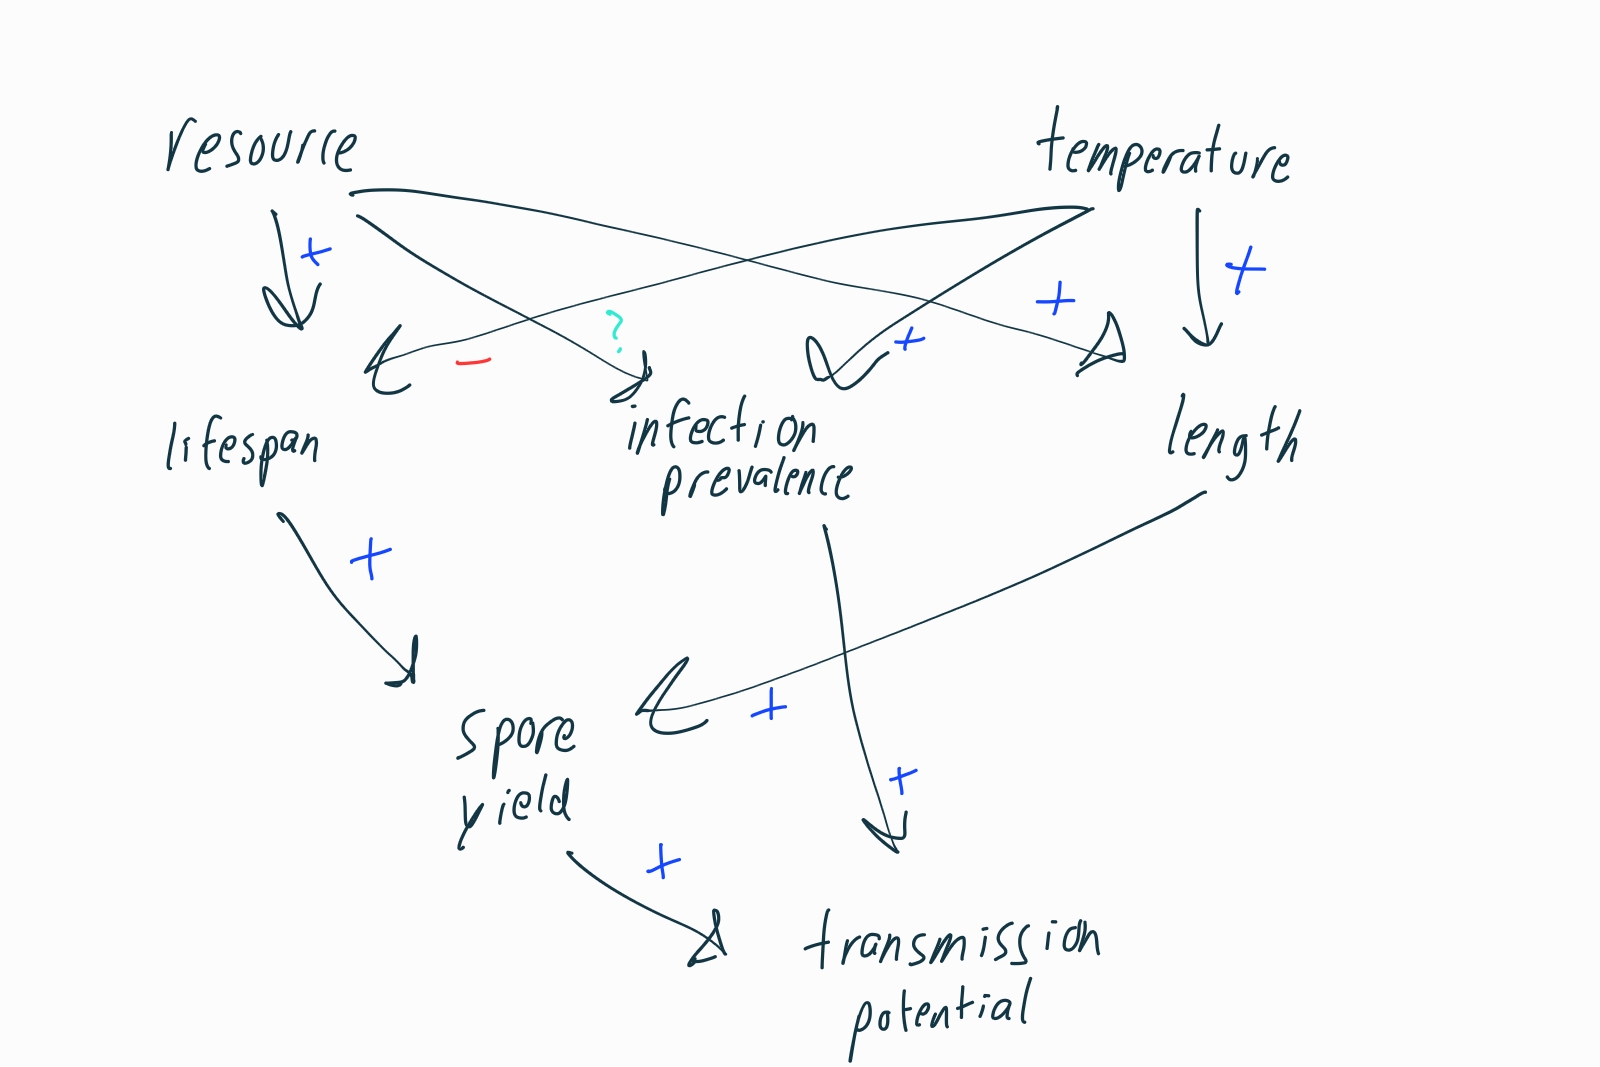 resource
temperature
+
+
+
?
+
−
lifespan
infection
prevalence
length
+
+
spore
yield
+
+
transmission
potential